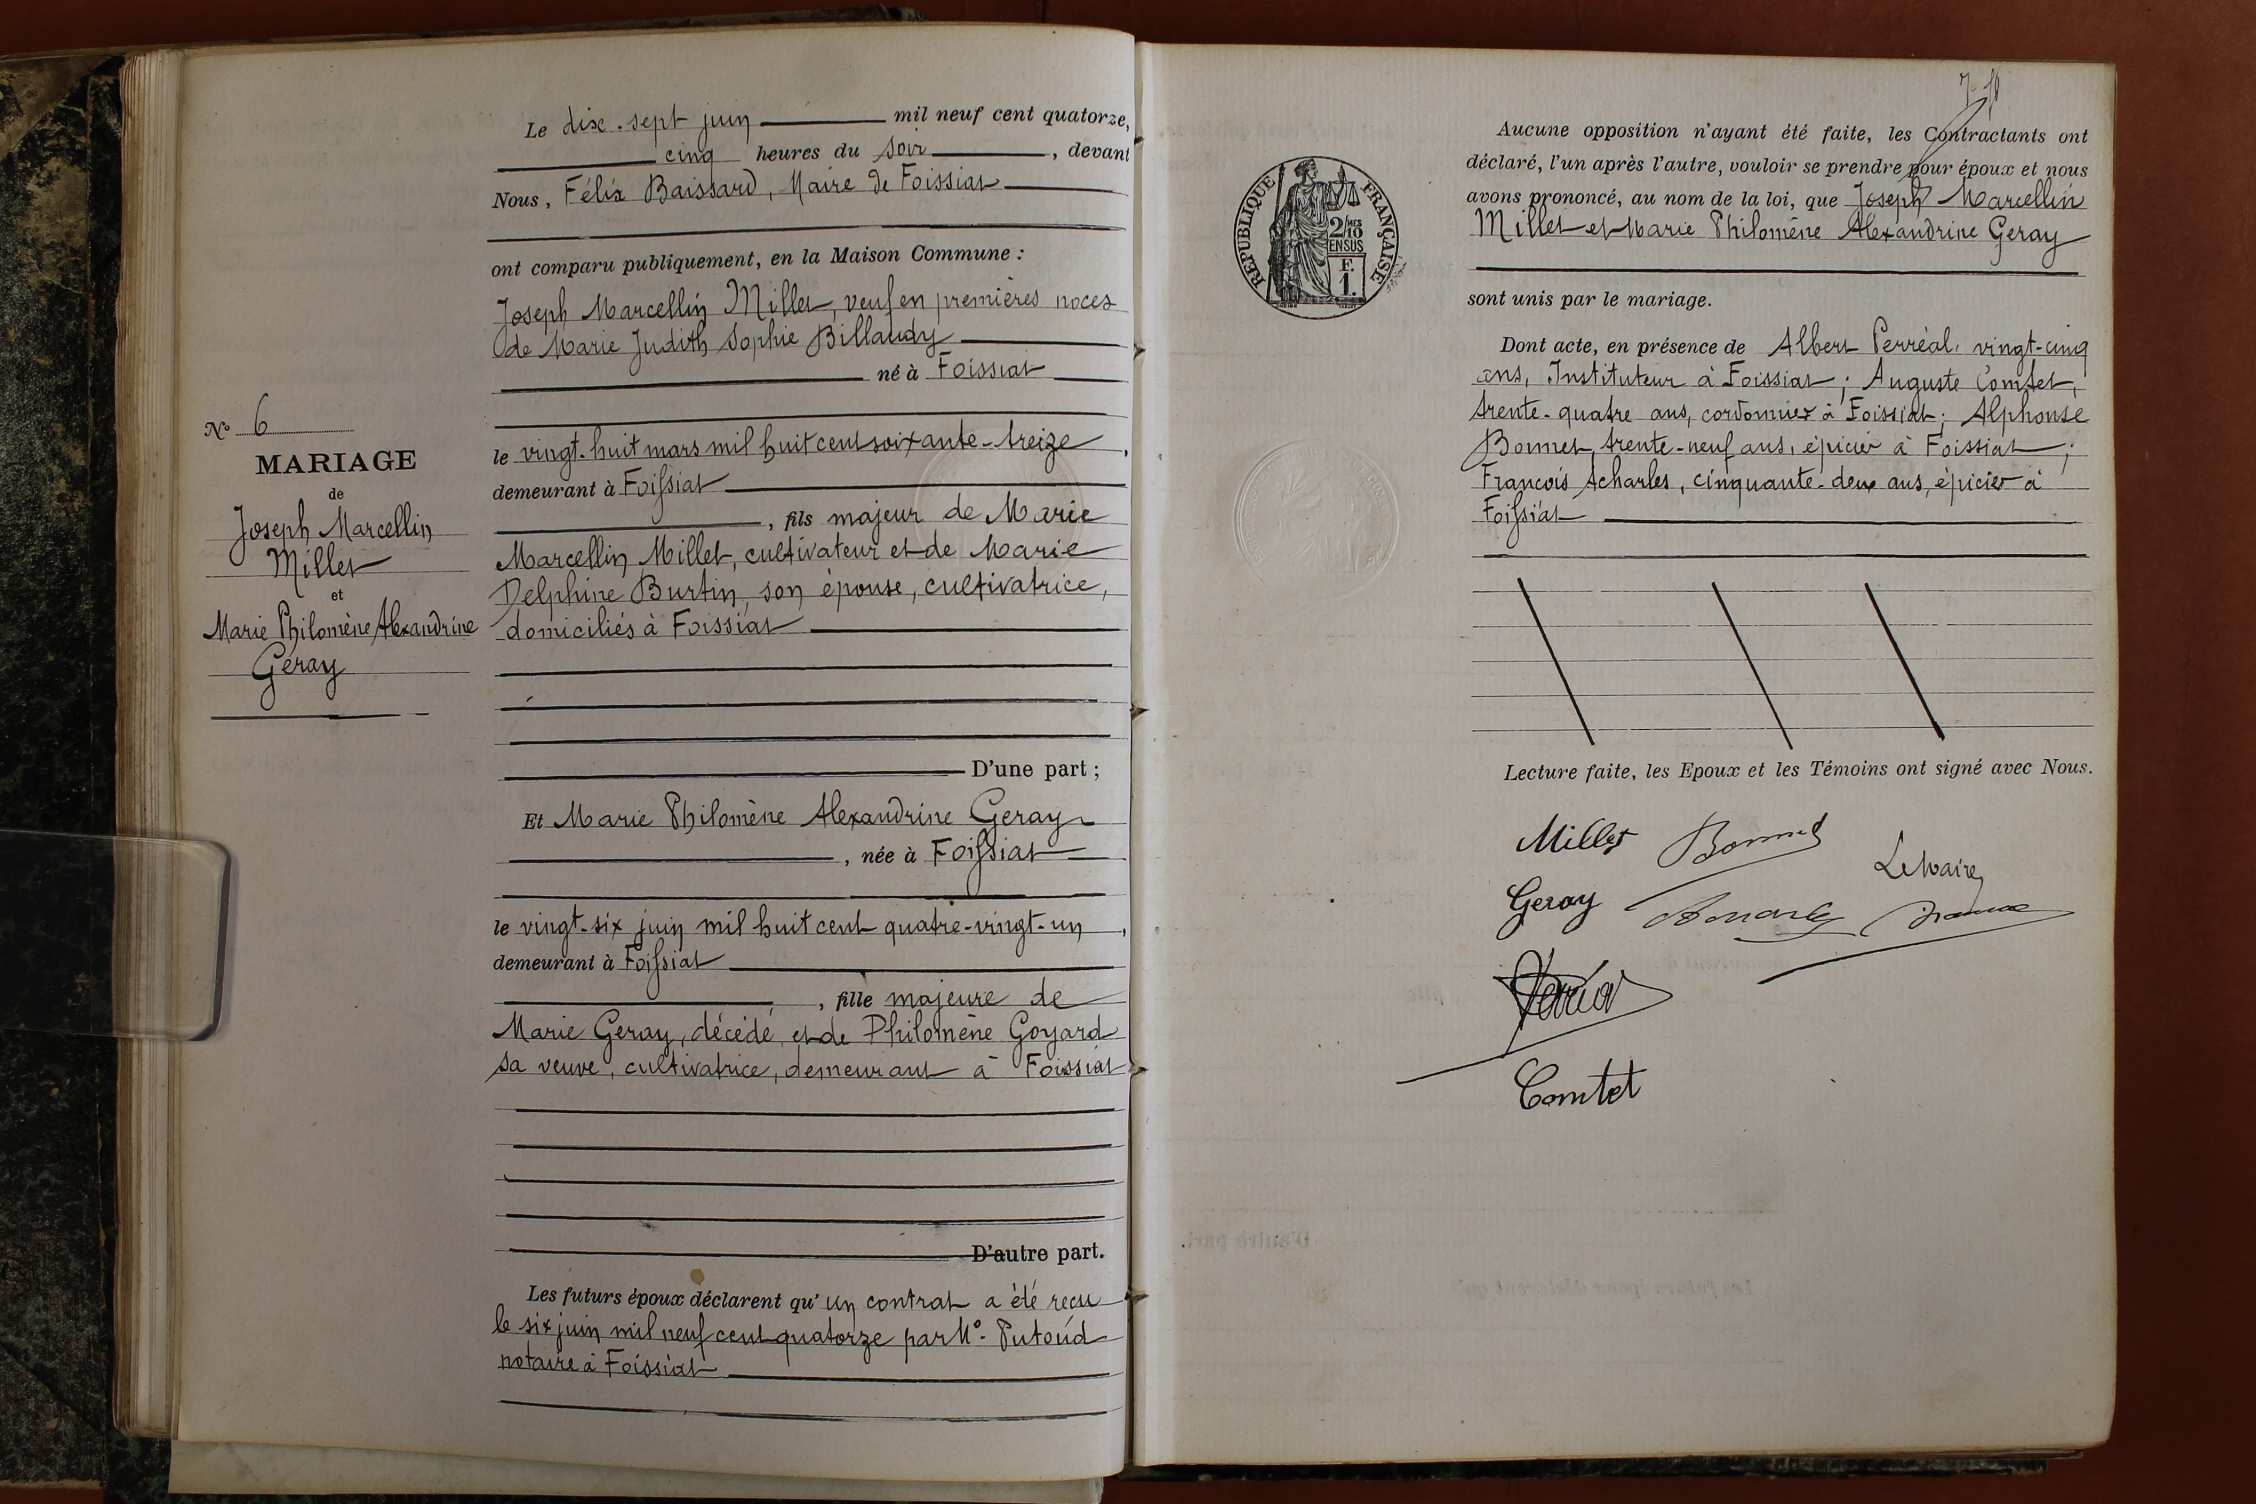 Le dix-sept juin mil neuf cent quatorze,
cinq heures du soir, devant
Nous, Félix Baissard, Maire de Foissiat
ont comparu publiquement, en la Maison Commune :
Joseph Marcellin Millet, veuf en premières noces
de Marie Judith Sophie Billaudy
né à Foissiat
le vingt-huit mars mil huit cent soixante-treize,
demeurant à Foissiat
, fils majeur de Marie
Marcellin Millet, cultivateur et de Marie
Delphine Burtin, son épouse, cultivatrice,
domiciliés à Foissiat
D'une part ;
Et Marie Philomène Alexandrine Geray
, née à Foissiat
le vingt-six juin mil huit cent quatre-vingt-un,
demeurant à Foissiat
, fille majeure de
Marie Geray, décédé, et de Philomène Goyard
sa veuve, cultivatrice, demeurant à Foissiat
D'autre part.
Les futurs époux déclarent qu'un contrat a été reçu
le six juin mil neuf cent quatorze par Mº. Putoud
notaire à Foissiat
Nº 6
MARIAGE
de
Joseph Marcellin
Millet
et
Marie Philomène Alexandrine
Geray
RÉPUBLIQUE FRANÇAISE
2/10
EN SUS
F.
1.
Aucune opposition n'ayant été faite, les Contractants ont
déclaré, l'un après l'autre, vouloir se prendre pour époux et nous
avons prononcé, au nom de la loi, que Joseph Marcellin
Millet et Marie Philomène Alexandrine Geray
sont unis par le mariage.
Dont acte, en présence de Albert Perréal, vingt-cinq
ans, Instituteur à Foissiat ; Auguste Comtet,
trente-quatre ans, cordonnier à Foissiat ; Alphonse
Bonnet, trente-neuf ans, épicier à Foissiat ;
François Acharles, cinquante-deux ans, épicier à
Foissiat
Lecture faite, les Epoux et les Témoins ont signé avec Nous.
Millet Bonnet
Le Maire,
Geray
Comtet